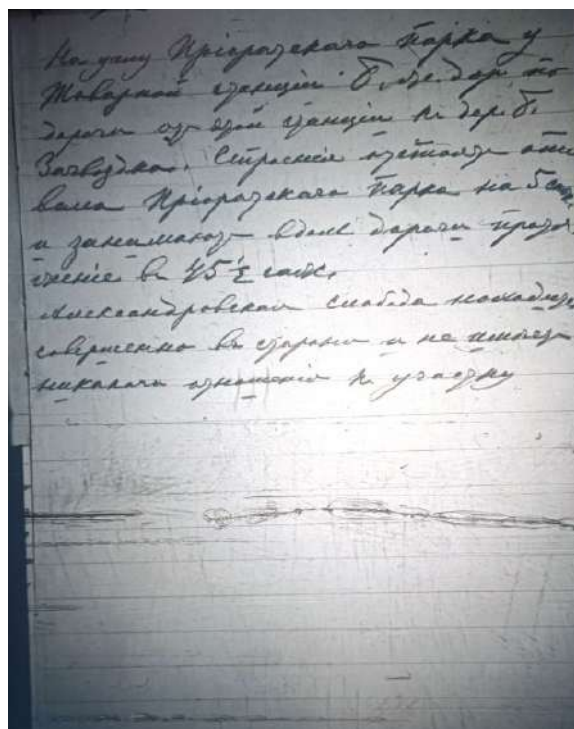 На углу Пріоратскаго Парка у
Товарной станціи Б. ж. дор. по
дороги отъ этой станціи къ дер. Б.
Загвоздка. Строенія отстоятъ отъ
вала Пріоратскаго Парка на 5 саж.
и занимаютъ вдоль дороги протя-
женіе въ 45 1/2 саж.
Александровская слобода находится
совершенно въ стороны и не имѣетъ
никакого отношенія къ участку